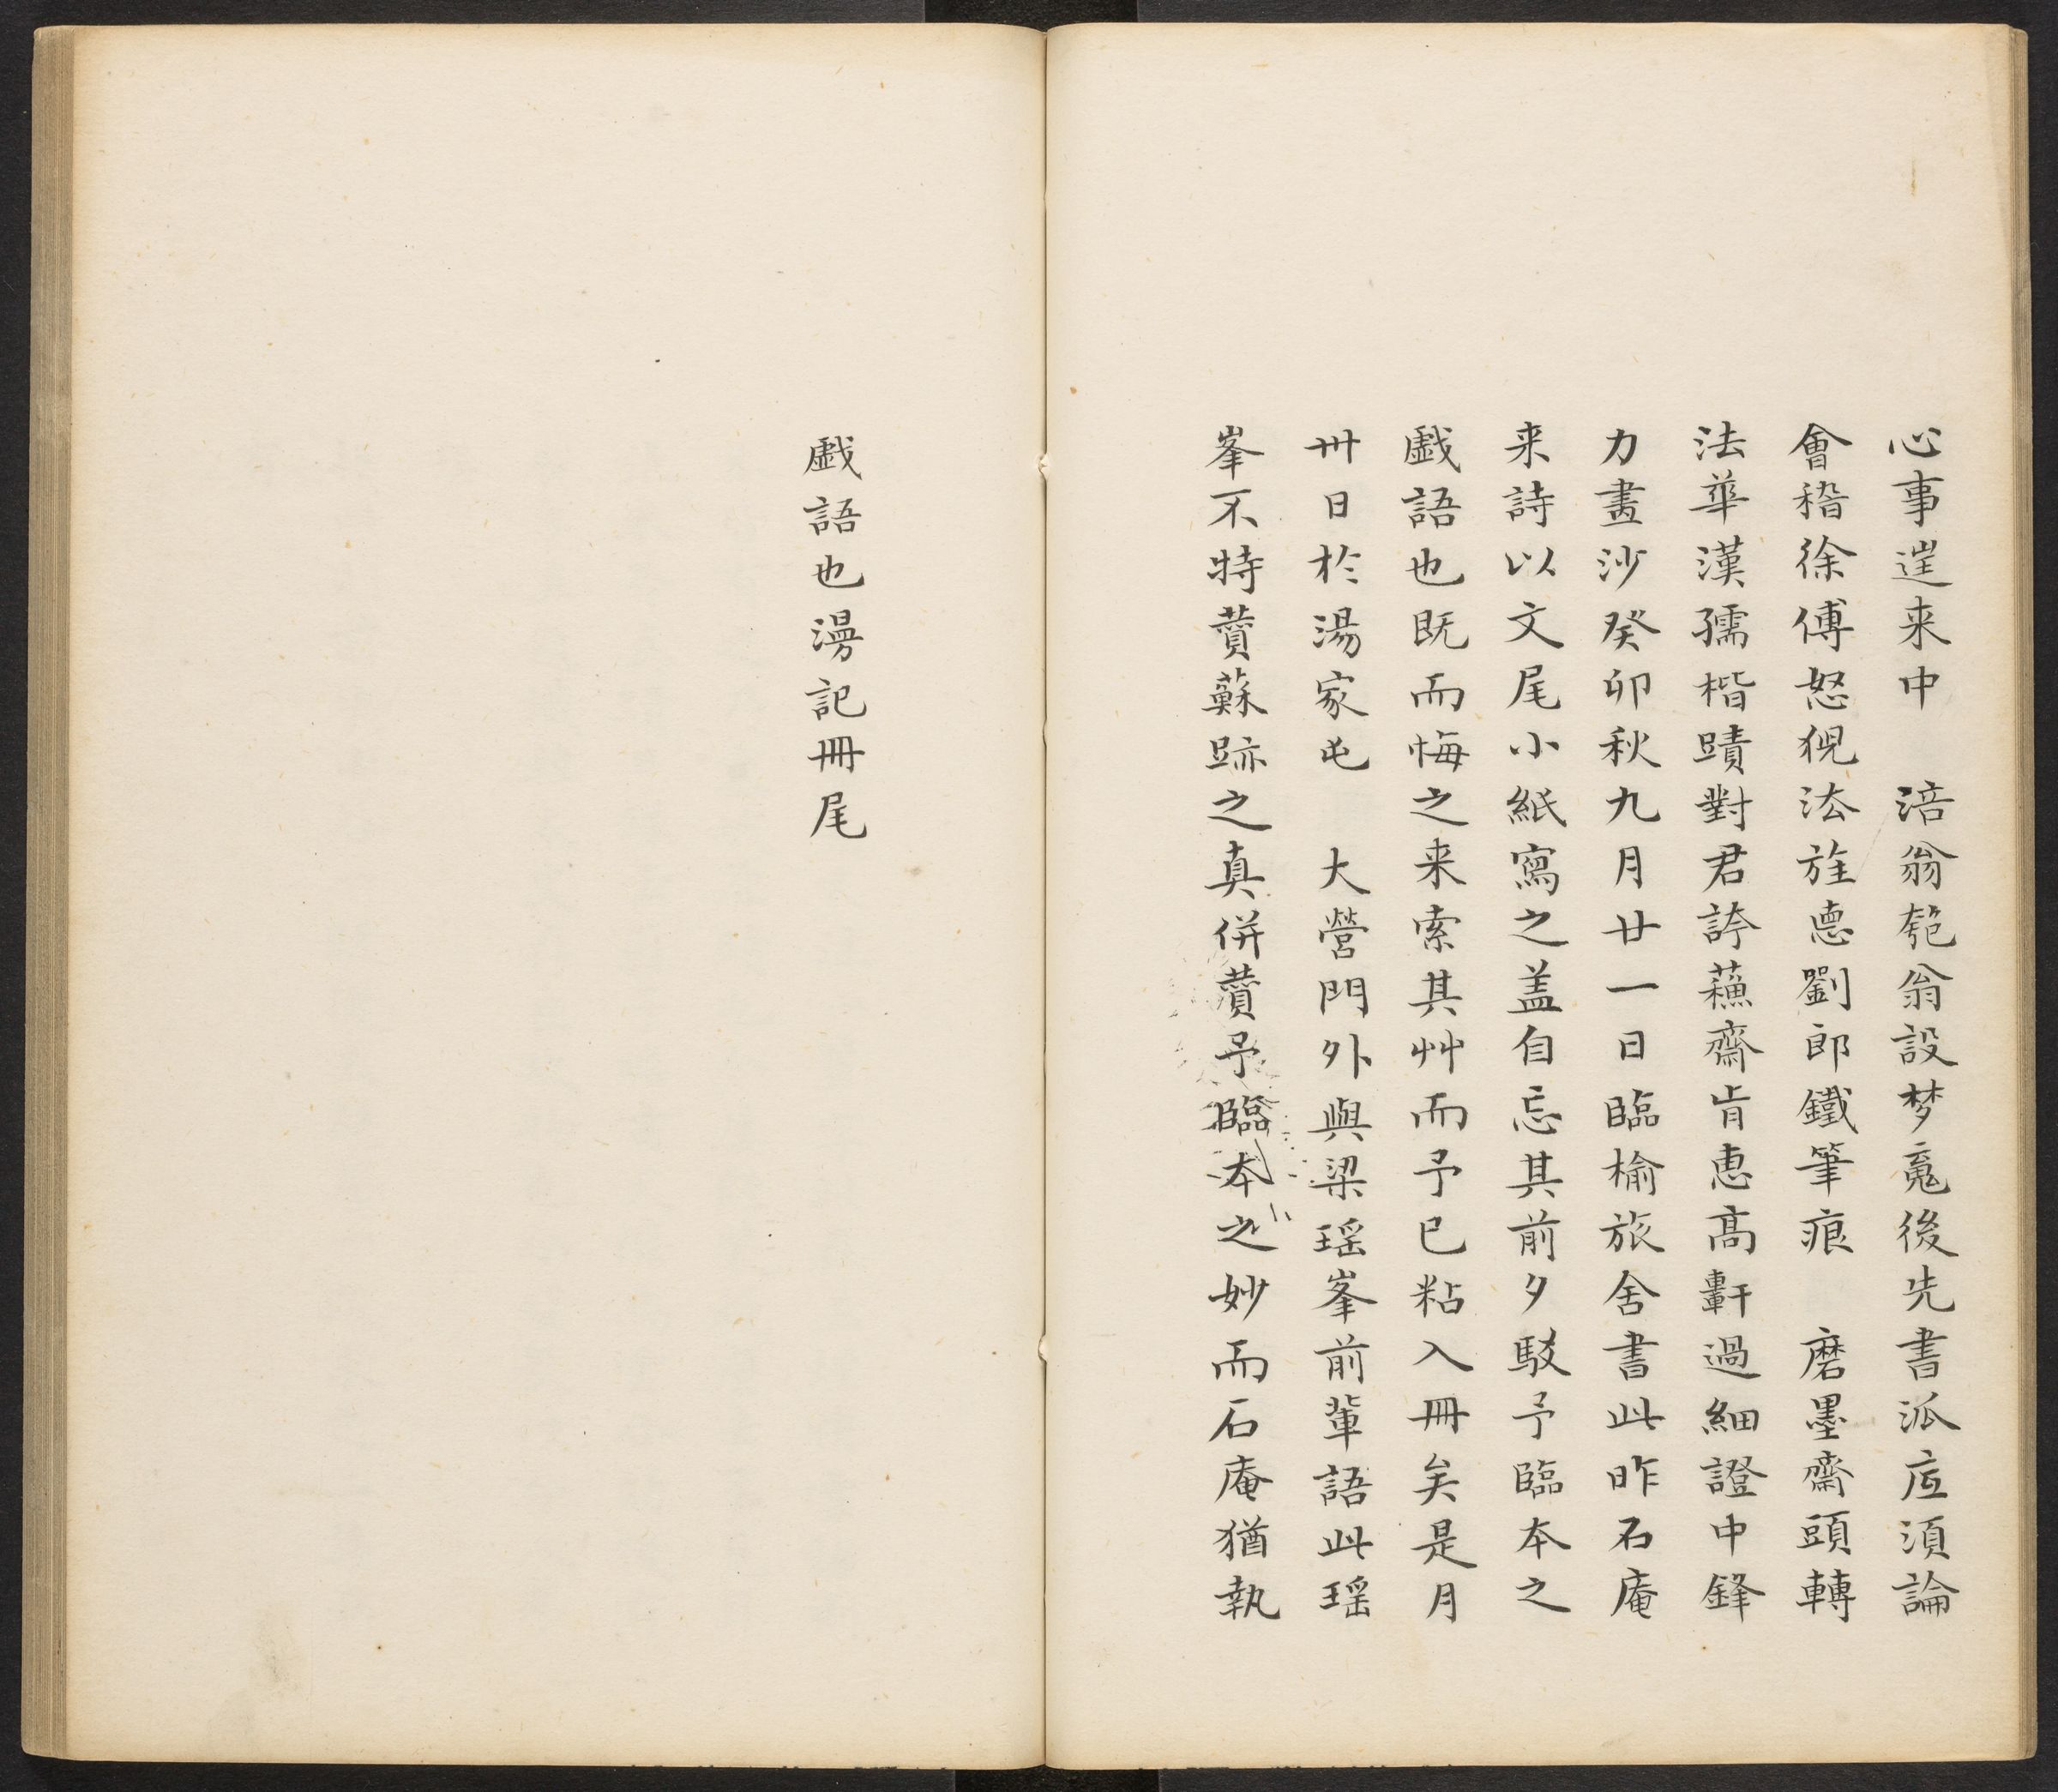 心事逰来中　涪翁匏翁設梦㝹後先書泒㡳須論
會稽徐傅怒猊㳒旌悳劉郎鐵筆痕　磨墨齋頭轉
法華漢孺楷蹟對君誇蘓齋肯恵髙軒過細證中鋒
力畫沙癸卯秋九月廿一日臨榆旅舍書此昨石庵
来詩以文尾小紙寫之盖自忘其前夕駁予臨本之
戲語也既而悔之来索其艸而予已粘入冊矣是月
卅日於湯家屯　大營門外與梁瑶峯前輩語此瑶
峯不特蕒蘇跡之真併蕒予臨本之妙而石庵猶執
戲語也漫記冊尾